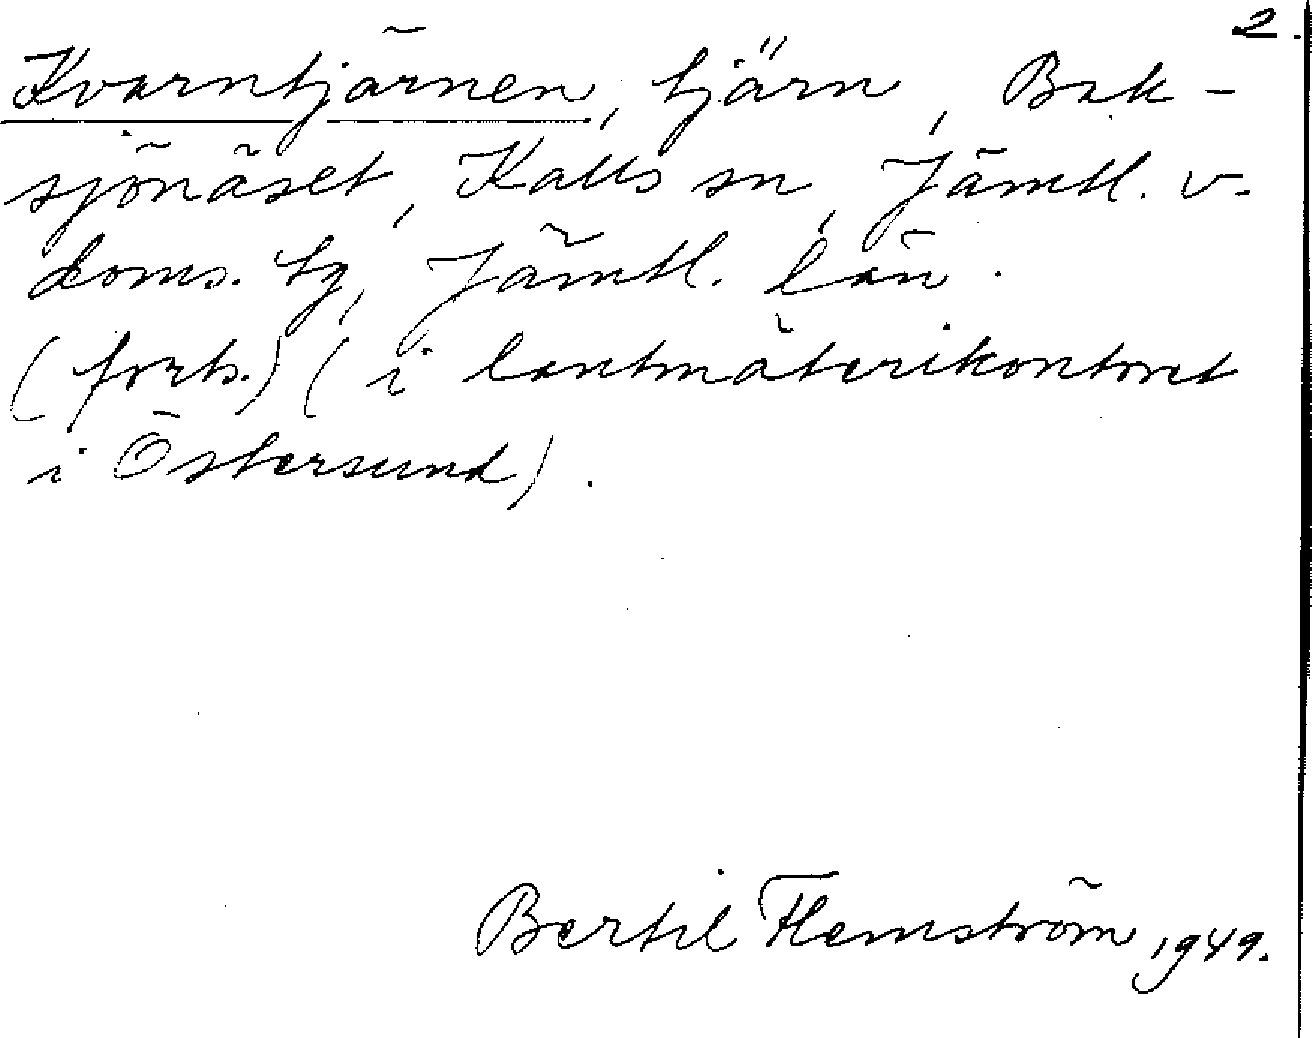 2.
Kvarntjärnen, tjärn, Bak-
sjönäset, Kalls sn, Jämtl. v.
doms. tg, Jämtl. län.
(forts.) (i lantmäterikontoret
i Östersund).
Bertil Flemström 1949.